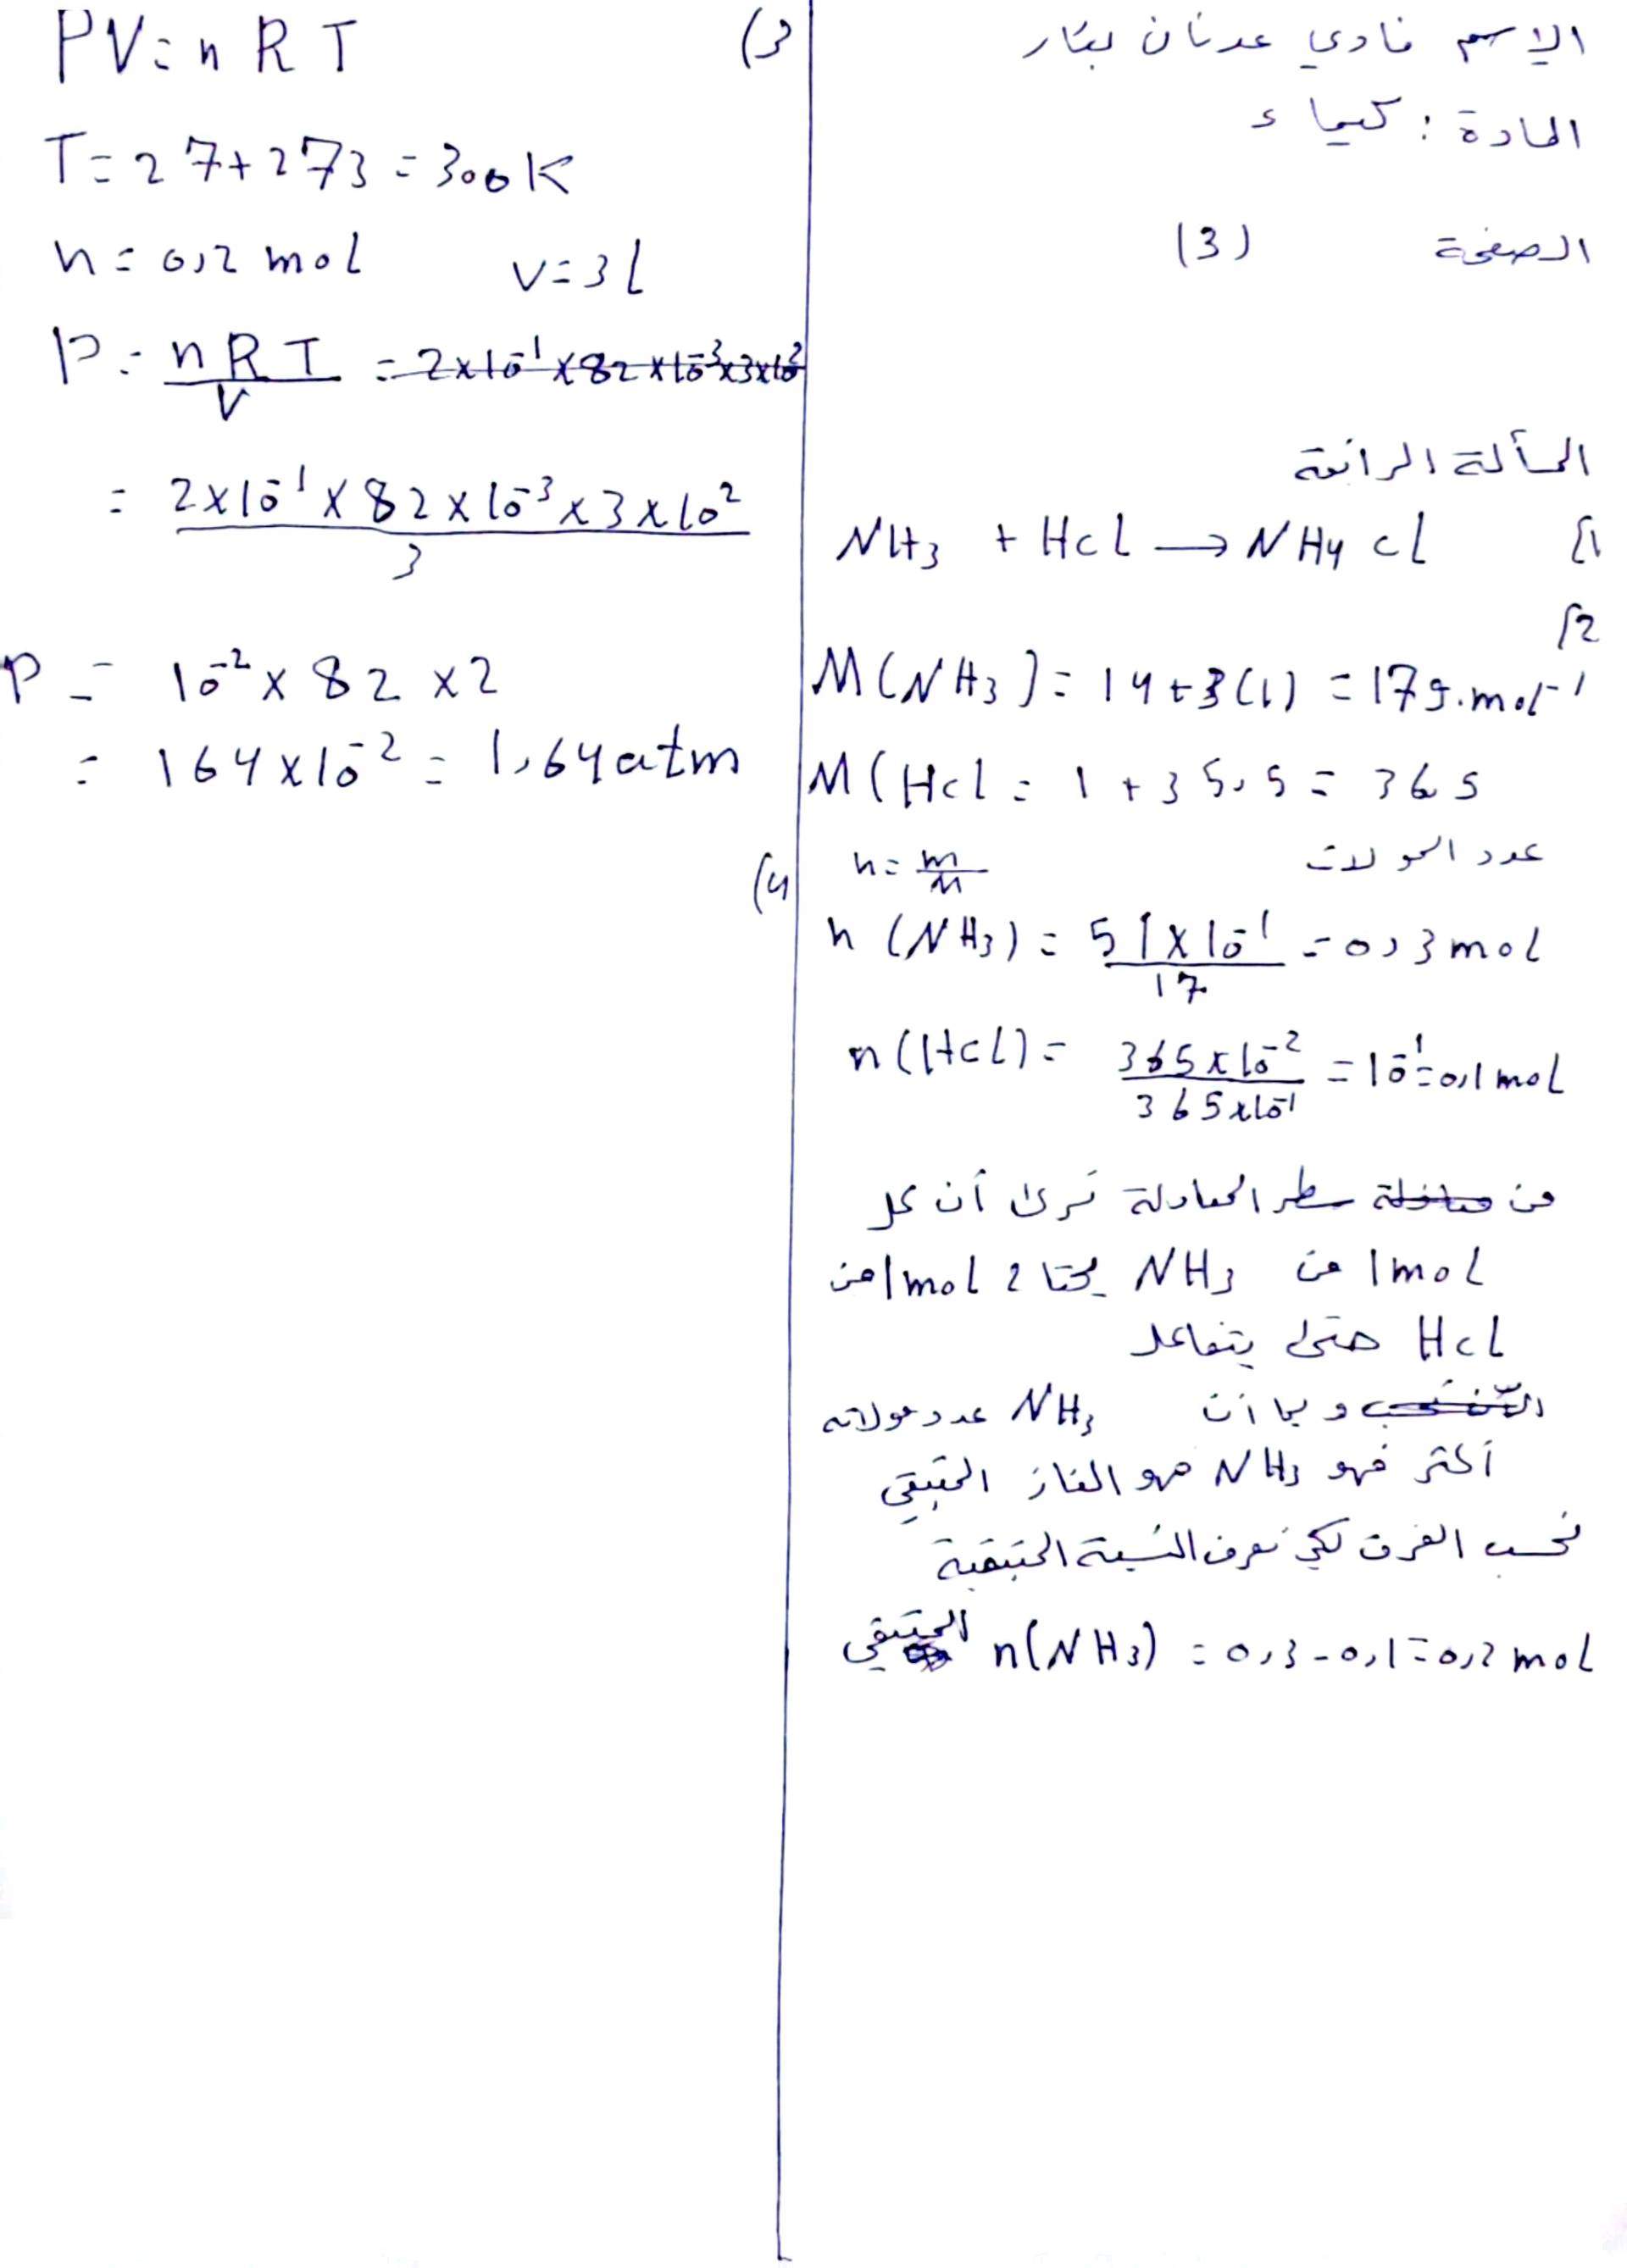 الاسم فادي عدنان بيّار
المادة : كيمياء
الصفحة (3)
المسألة الرابعة
1] NH3 + Hcl → NH4 cl
2]
M(NH3) = 14+3(1) = 17g.mol-1
M(Hcl = 1 + 35,5 = 365
عدد المولات
n = m/M
n (NH3) = 51x10-1/17 = 0,3 mol
n(Hcl) = 365x10-2/365x10-1 = 10-1 = 0,1 mol
من سطر المعادلة نرى أن كل
1mol من NH3 يحتاج 1mol من
Hcl حتى يتفاعل
وبما أن NH3 عدد مولاته
أكثر فهو NH3 هو الغاز المتبقي
نحسب الفرق لكي نعرف النسبة المتبقية
n(NH3) المتبقي = 0,3 - 0,1 = 0,2 mol
3) PV = n R T
T = 27+273 = 300K
n = 0,2 mol v = 3l
P = nRT/V = 2x10-1x82x10-3x3x102
= 2x10-1x82x10-3x3x102/3
P = 10-2x82x2
= 164x10-2 = 1,64 atm
4)